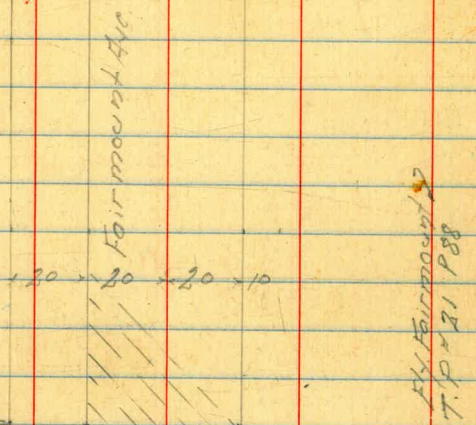 Fairmount Ave.
20 20 20 10
Fairmount
T.P - 21 P 88